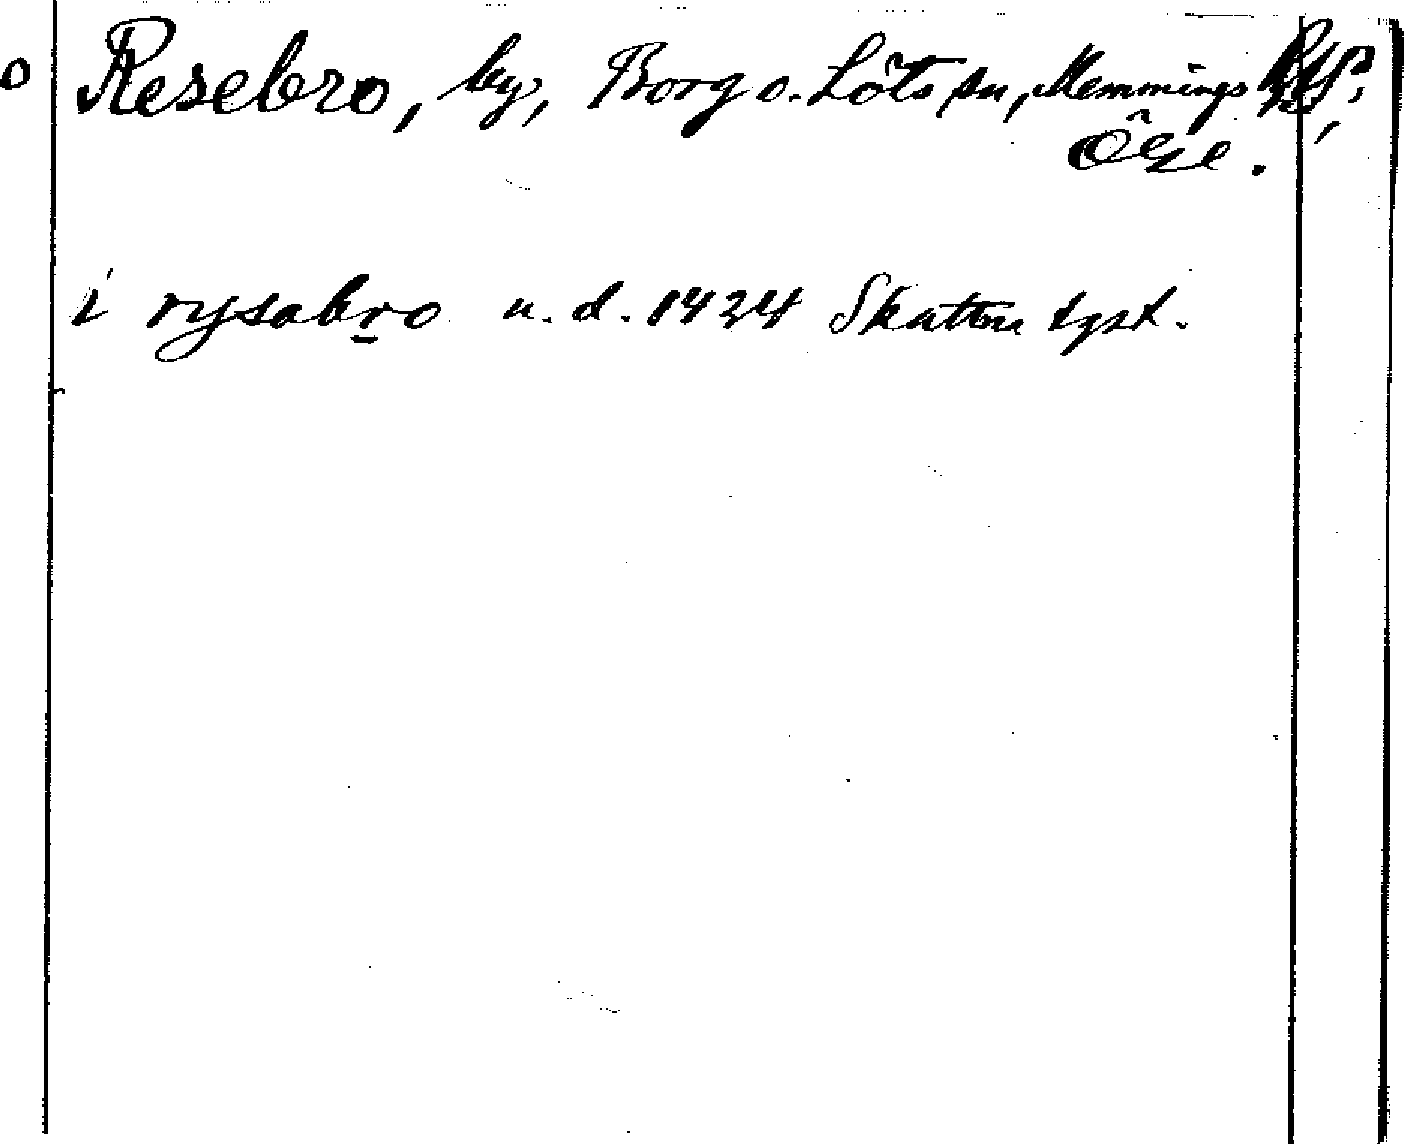 Resebro, by, Borg o. Löts sn, Memmings
Ögl.
i rysabro u. d. 1434 Skattm tyst.